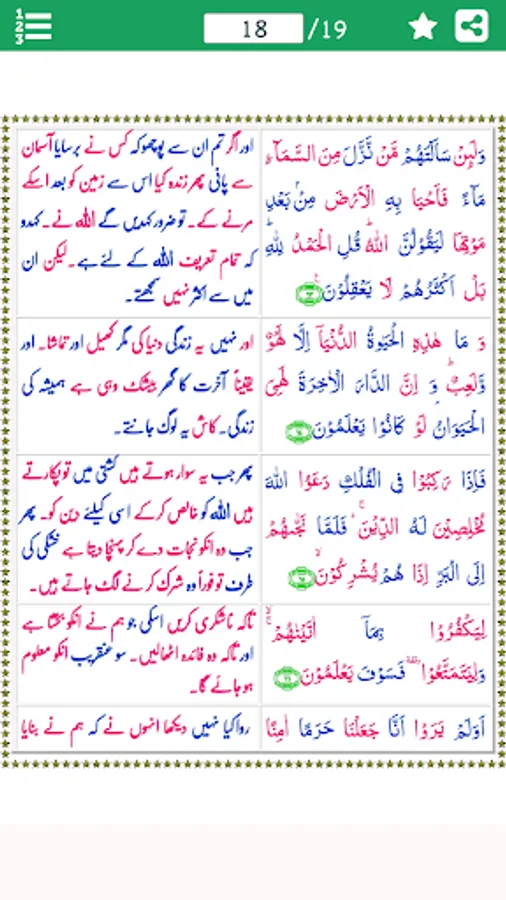 1
2
3
18 /19
وَلَئِنْ سَاَلْتَهُمْ مَّنْ نَّزَّلَ مِنَ السَّمَآءِ
مَآءً فَاَحْيَا بِهِ الْاَرْضَ مِنْۢ بَعْدِ
مَوْتِهَا لَيَقُوْلُنَّ اللّٰهُ ؕ قُلِ الْحَمْدُ لِلّٰهِ ؕ
بَلْ اَكْثَرُهُمْ لَا يَعْقِلُوْنَ
اور اگر تم ان سے پوچھو کہ کس نے برسایا آسمان
سے پانی پھر زندہ کیا اس سے زمین کو بعد اسکے
مرنے کے۔ تو ضرور کہدیں گے اللہ نے۔ کہدو
کہ تمام تعریف اللہ کے لئے ہے۔ لیکن ان
میں سے اکثر نہیں سمجھتے۔
وَ مَا هٰذِهِ الْحَيٰوةُ الدُّنْيَاۤ اِلَّا لَهْوٌ
وَّلَعِبٌ ؕ وَ اِنَّ الدَّارَ الْاٰخِرَةَ لَهِيَ
الْحَيَوَانُ لَوْ كَانُوْا يَعْلَمُوْنَ
اور نہیں یہ زندگی دنیا کی مگر کھیل اور تماشا۔ اور
یقیناً آخرت کا گھر بیشک وہی ہے ہمیشہ کی
زندگی۔ کاش یہ لوگ جانتے۔
فَاِذَا رَكِبُوْا فِى الْفُلْكِ دَعَوُا اللّٰهَ
مُخْلِصِيْنَ لَهُ الدِّيْنَ ۚ فَلَمَّا نَجّٰىهُمْ
اِلَى الْبَرِّ اِذَا هُمْ يُشْرِكُوْنَ
پھر جب یہ سوار ہوتے ہیں کشتی میں تو پکارتے
ہیں اللہ کو خالص کرکے اسی کیلئے دین کو۔ پھر
جب وہ انکو نجات دے کر پہنچا دیتا ہے خشکی کی
طرف تو فوراً وہ شرک کرنے لگ جاتے ہیں۔
لِيَكْفُرُوْا بِمَاۤ اٰتَيْنٰهُمْ ۙ
وَلِيَتَمَتَّعُوْا فَسَوْفَ يَعْلَمُوْنَ
تاکہ ناشکری کریں اسکی جو ہم نے انکو بخشا ہے
اور تاکہ وہ فائدہ اٹھالیں۔ سو عنقریب انکو معلوم
ہو جائے گا۔
اَوَلَمْ يَرَوْا اَنَّا جَعَلْنَا حَرَمًا اٰمِنًا
کیا نہیں دیکھا انہوں نے کہ ہم نے بنایا